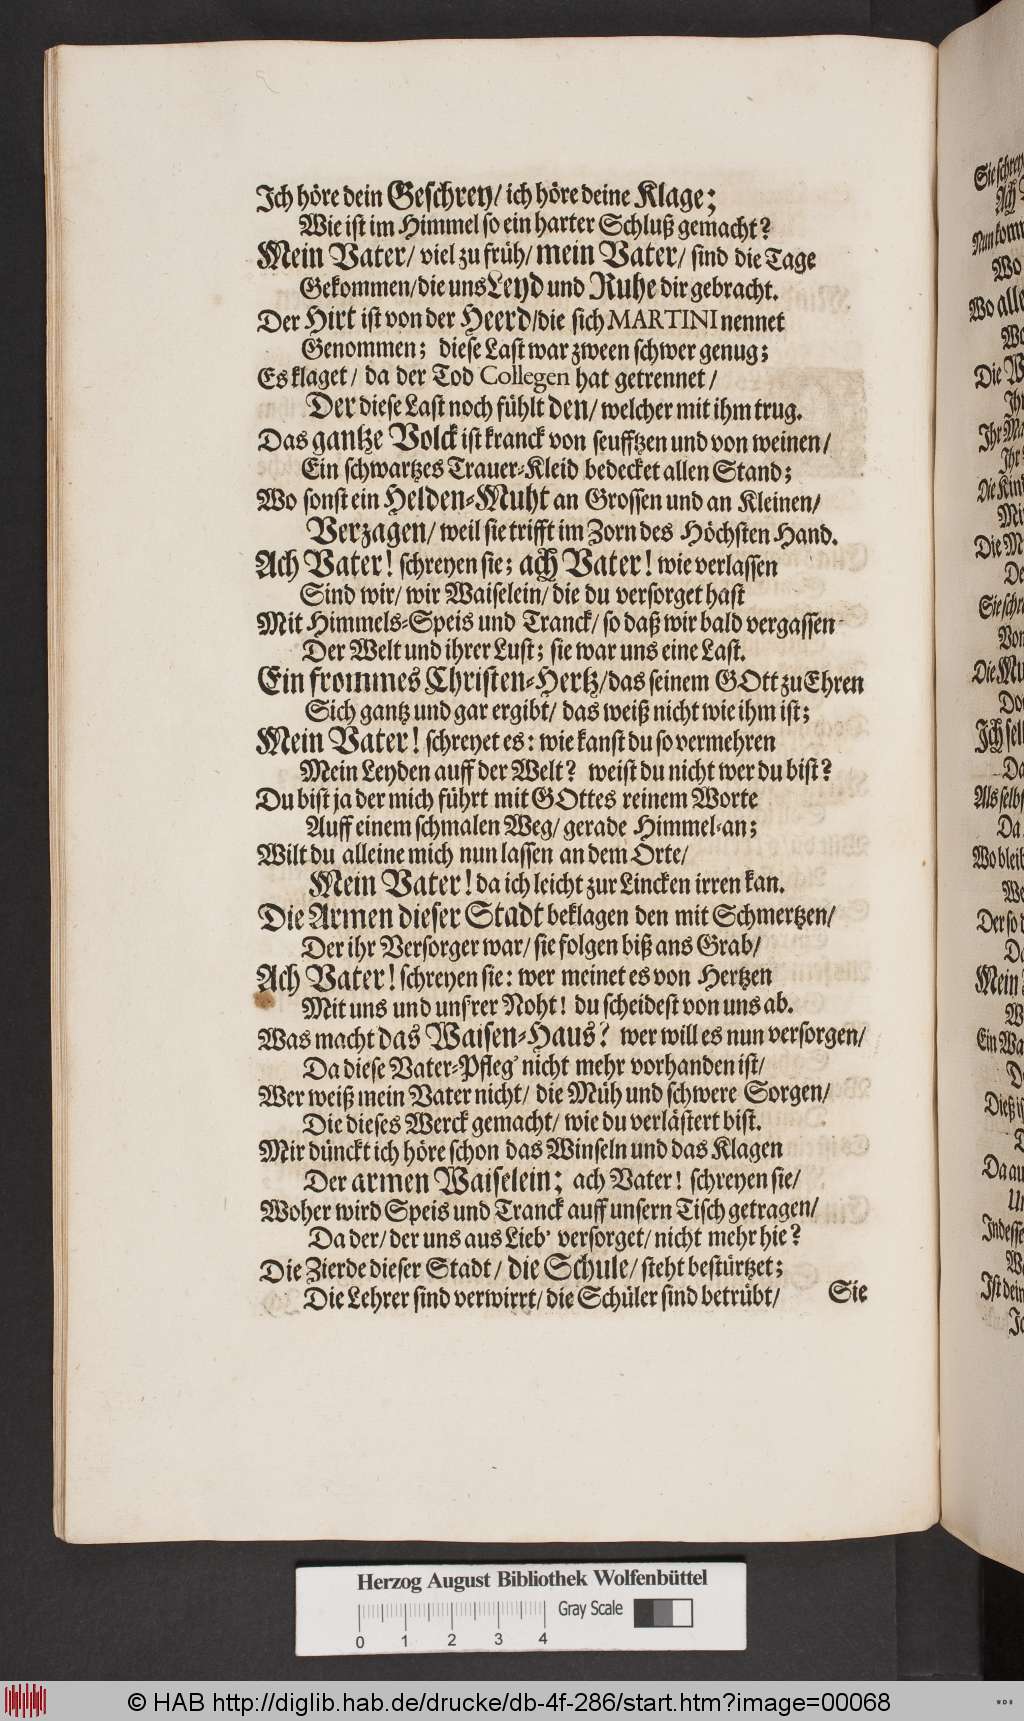 Ich höre dein Geschrey/ ich höre deine Klage;
Wie ist im Himmel so ein harter Schluß gemacht?
Mein Vater/ viel zu früh/ mein Vater/ sind die Tage
Gekommen/die uns Leyd und Ruhe dir gebracht.
Der Hirt ist von der Heerd/die sich MARTINI nennet
Genommen; diese Last war zween schwer genug;
Es klaget/ da der Tod Collegen hat getrennet/
Der diese Last noch fühlt den/ welcher mit ihm trug.
Das gantze Volck ist kranck von seufftzen und von weinen/
Ein schwartzes Trauer-Kleid bedecket allen Stand;
Wo sonst ein Helden-Muht an Grossen und an Kleinen/
Verzagen/ weil sie trifft im Zorn des Höchsten Hand.
Ach Vater! schreyen sie; ach Vater! wie verlassen
Sind wir/ wir Waiselein/ die du versorget hast
Mit Himmels-Speis und Tranck/ so daß wir bald vergassen
Der Welt und ihrer Lust; sie war uns eine Last.
Ein frommes Christen-Hertz/das seinem GOtt zu Ehren
Sich gantz und gar ergibt/ das weiß nicht wie ihm ist;
Mein Vater! schreyet es: wie kanst du so vermehren
Mein Leyden auff der Welt? weist du nicht wer du bist?
Du bist ja der mich führt mit GOttes reinem Worte
Auff einem schmalen Weg/ gerade Himmel-an;
Wilt du alleine mich nun lassen an dem Orte/
Mein Vater! da ich leicht zur Lincken irren kan.
Die Armen dieser Stadt beklagen den mit Schmertzen/
Der ihr Versorger war/ sie folgen biß ans Grab/
Ach Vater! schreyen sie: wer meinet es von Hertzen
Mit uns und uns'rer Noht! du scheidest von uns ab.
Was macht das Waisen-Haus? wer will es nun versorgen/
Da diese Vater-Pfleg' nicht mehr vorhanden ist/
Wer weiß mein Vater nicht/ die Müh und schwere Sorgen/
Die dieses Werck gemacht/ wie du verlästert bist.
Mir dünckt ich höre schon das Winseln und das Klagen
Der armen Waiselein; ach Vater! schreyen sie/
Woher wird Speis und Tranck auff unsern Tisch getragen/
Da der/ der uns aus Lieb' versorget/ nicht mehr hie?
Die Zierde dieser Stadt/ die Schule/ steht bestürtzet;
Die Lehrer sind verwirrt/ die Schüler sind betrübt/
Sie
Herzog August Bibliothek Wolfenbüttel
Gray Scale
0 1 2 3 4
© HAB http://diglib.hab.de/drucke/db-4f-286/start.htm?image=00068